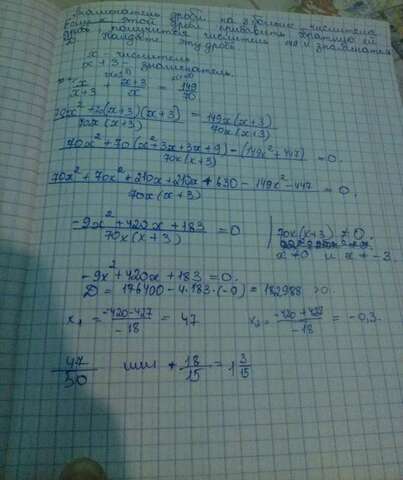 Знаменатель дроби на 3 больше числителя
этой дроби прибавить обратную ей
дробь, получится числитель 149 и знаменатель
70. Найдите эту дробь
x - числитель
x + 3 - знаменатель.
x/(x+3) + (x+3)/x = 149/70
(70x² + 70(x+3)(x+3))/(70x(x+3)) = 149x(x+3)/(70x(x+3))
(70x² + 70(x² + 3x + 3x + 9) - (149x² + 447))/(70x(x+3)) = 0.
(70x² + 70x² + 210x + 210x + 630 - 149x² - 447)/(70x(x+3)) = 0.
(-9x² + 420x + 183)/(70x(x+3)) = 0 | 70x(x+3) ≠ 0.
x ≠ 0 и x ≠ -3.
-9x² + 420x + 183 = 0.
D = 176400 - 4·183·(-9) = 182988 > 0.
x₁ = (-420-427)/-18 = 47 x₂ = (-420+427)/-18 = -0,3.
47/50 или 18/15 = 1 3/15